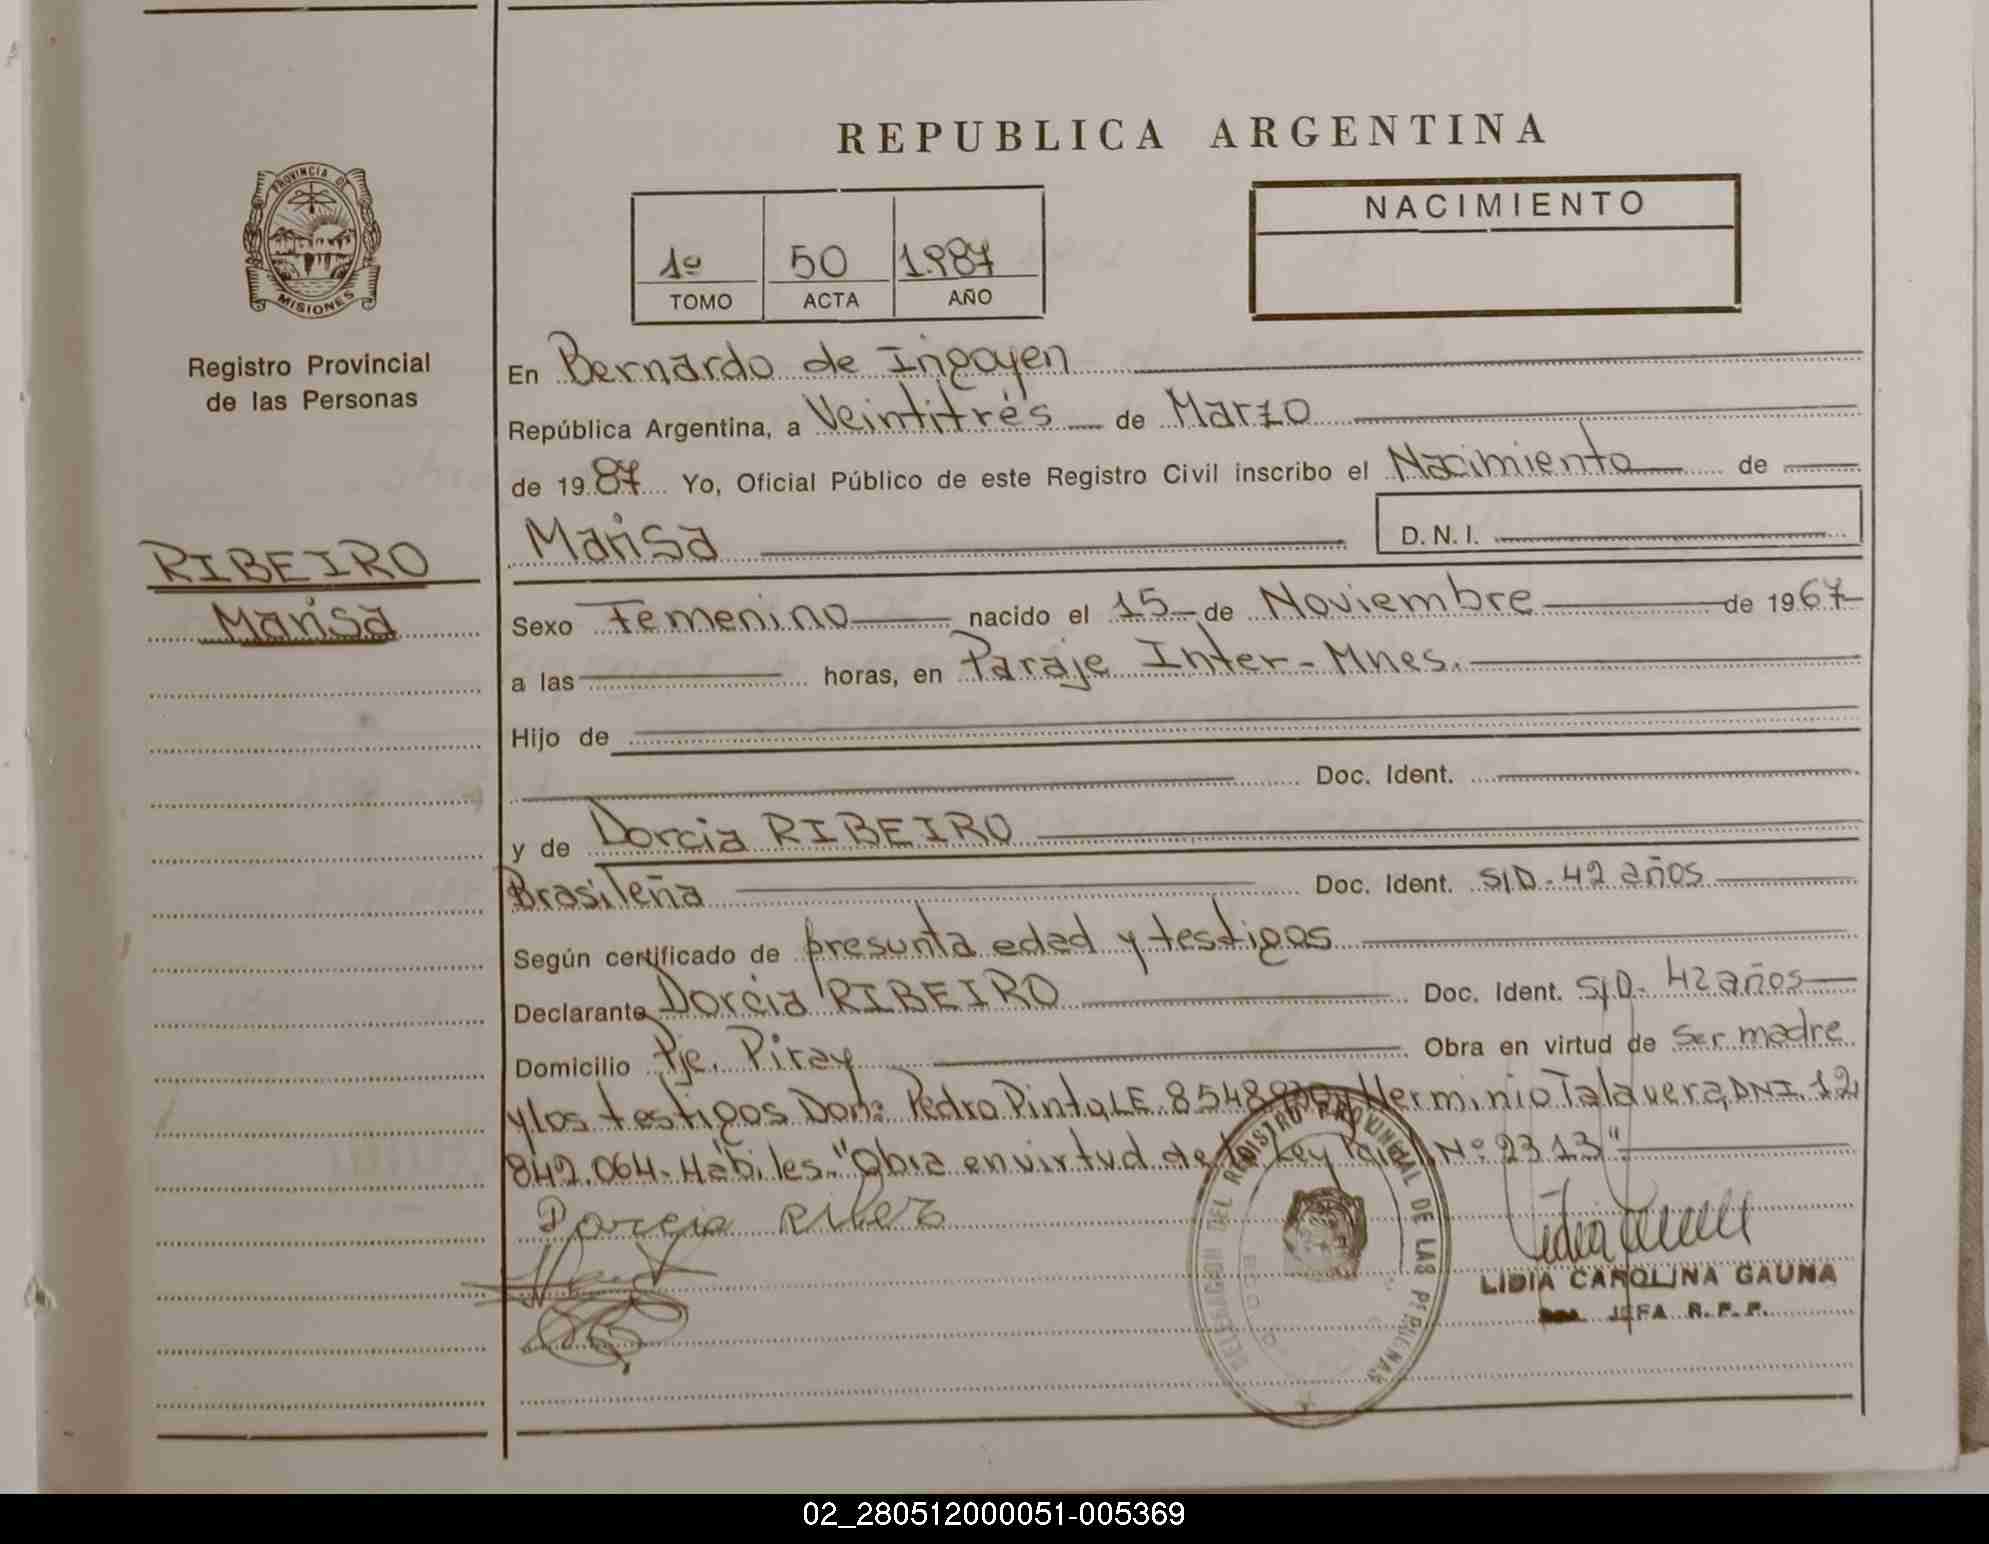 REPUBLICA ARGENTINA
PROVINCIA DE
MISIONES
Registro Provincial
de las Personas
1º 50 1987
TOMO ACTA AÑO
NACIMIENTO
En Bernardo de Irigoyen
República Argentina, a Veintitrés de Marzo
de 1987 Yo, Oficial Público de este Registro Civil inscribo el Nacimiento de
Marisa D.N.I.
RIBEIRO
Marisa
Sexo Femenino nacido el 15 de Noviembre de 1967
a las horas, en Paraje Inter-Mnes.
Hijo de
Doc. Ident.
y de Dorcia RIBEIRO
Brasileña Doc. Ident. S/D. 42 años
Según certificado de presunta edad y testigos
Declarante Dorcia RIBEIRO Doc. Ident. S/D. 42 años
Domicilio Pje. Piray Obra en virtud de ser madre
y los testigos Don: Pedro Pinto, LE. Herminio Talavera, DNI. 12
842.064. Hábiles. "Obra en virtud de la Ley Nº 2313".
Dorcia
DELEGACION DEL REGISTRO PROVINCIAL DE LAS PERSONAS
LIDIA CAROLINA GAUNA
JEFA R.P.P.
02_280512000051-005369